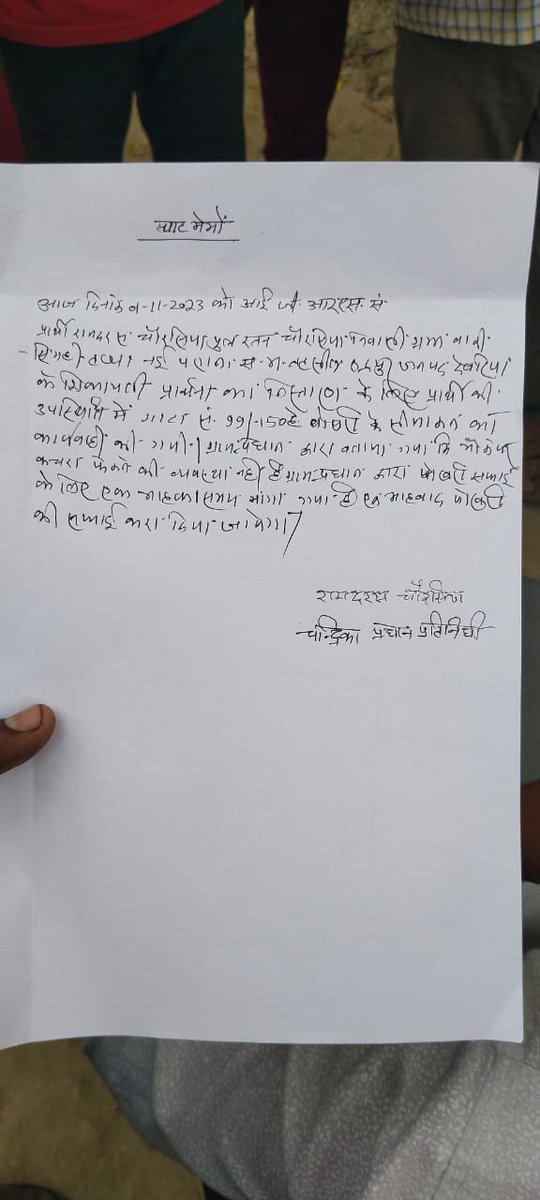 स्पाट मेमों
आज दिनांक 01-11-2023 को आई जी आरएस सं
प्रार्थी रामदरस चौरसिया पुत्र रतन चौरसिया निवासी ग्राम
तप्पा तहसील जनपद देवरिया
के शिकायती प्रार्थना का निस्तारण के लिए प्रार्थी की
उपस्थिति में गाटा सं. 99/.150हे. पोखरी के सीमाकन का
कार्यवाही की गयी। ग्रामप्रधान द्वारा बताया गया कि मौके पर
कचरा फेकने की व्यवस्था नहीं है ग्रामप्रधान द्वारा पोखरी सफाई
के लिए एक माह का समय मांगा गया है एक माह बाद पोखरी
की सफाई करा दिया जायेगा।
रामदरस चौरसिया
चन्द्रिका प्रधान प्रतिनिधी